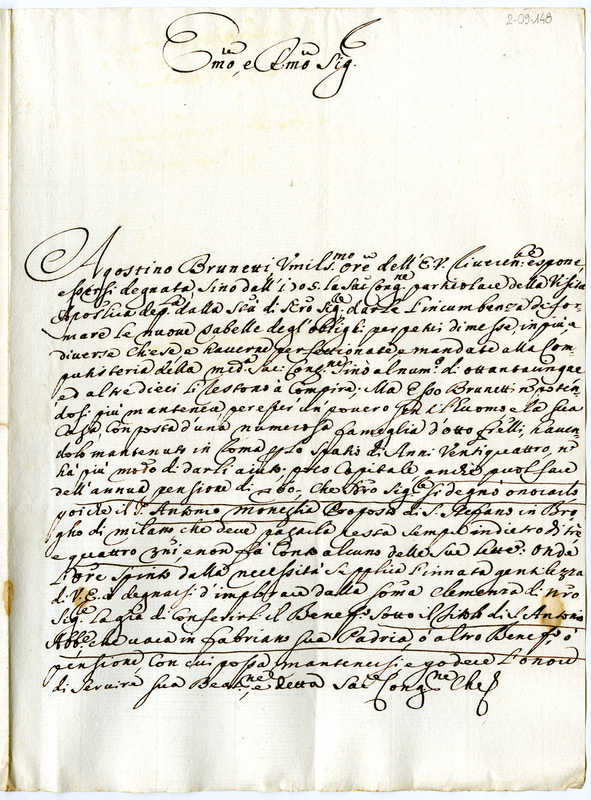 2-09-148
Emo, e Rmo Sig.
Agostino Brunetti Umilis.mo Ore dell'E.V. riveren.te espone
essersi degnata sino dall' 1705. la Sac: Cong.ne particolare della Visita
Apostlica dep. dalla Stà di Nro Sig.re darle l'incumbenza di for-
mare le nuove Tabelle degl'oblighi perpetui di messe, in più e
diverse chiese e haverne perfettionate e mandate alla Com-
putisteria della med. Sac: Cong.ne sino al num.o di ottantacinque
ed altre dieci li restono à compire; Ma Esso Brunetti n potin-
dosi più mantener per esser un povero Gentiluomo e la sua
Casa composta d'una numerosa famiglia d'otto frelli, haven-
dolo mantenuto in Roma p lo spatio di Anni Ventiquattro, nò
hà più modo di darli aiuto. poco capitale anche puol fare
dell'annua pensione di 60, che Nro Sig.re si degnò onorarlo
poiche il S. Antonio Proposto di S. Stefano in Bro
gho di milano che deve pagarla resta sempre indietro di trè
e quattro anni e non fà conto alcuno delle sue lettere: Onde
l'Ore spinto dalla necessità supplica l'innata gentilezza
di V.E. à degnarsi d'implorare dalla somma clemenza di nro
Sig.re la gra di conferirli il Benef.o sotto il titolo di S. Antonio
Abb.e che vaca in Fabriano sua Padria, ò altro Benef.o, ò
pensione con cui possa mantenersi e godere l'onore
di servire sua Beat.ne, e detta Sac. Cong.ne Che